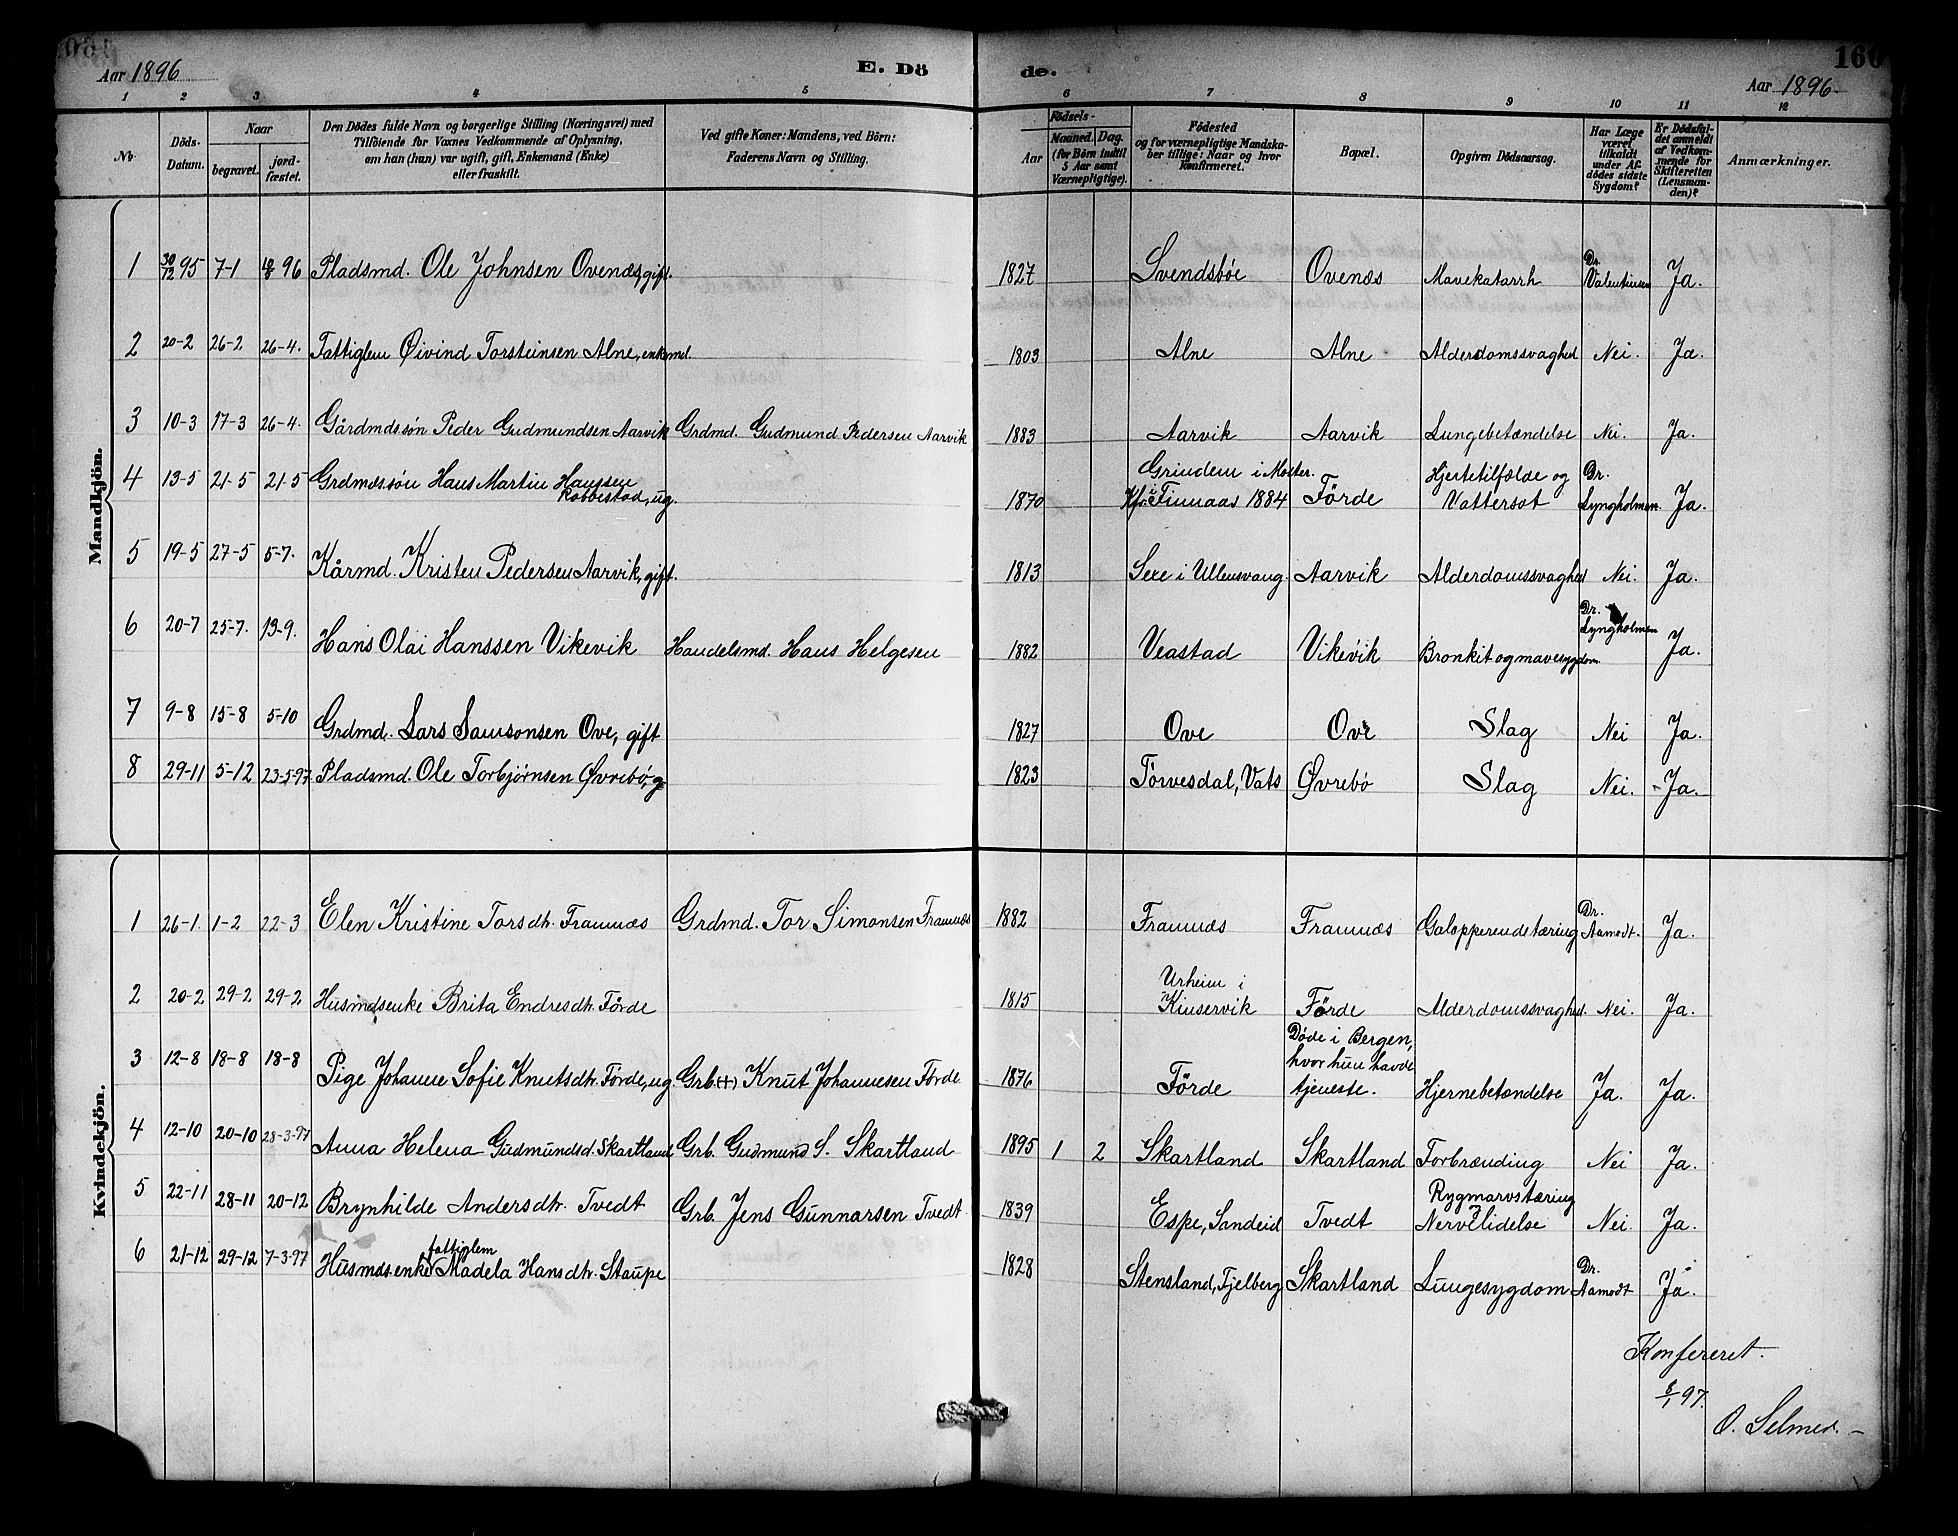 Aar 1896
E. Dö
de.
160
Aar 1896.
1 2 3 4 5 6 7 8 9 10 11 12
No.
Döds-Datum.
Naar
begravet.
jord-fæstet.
Den Dödes fulde Navn og borgerlige Stilling (Næringsvei) med
Tilföiende for Voxnes Vedkommende af Oplysning,
om han (hun) var ugift, gift, Enkemand (Enke)
eller fraskilt.
Ved gifte Koner: Mandens, ved Börn:
Faderens Navn og Stilling.
Födsels-
Aar
Maaned. Dag.
(for Börn indtil
5 Aar samt
Værnepligtige).
Födested
og for værnepligtige Mandska-
ber tillige: Naar og hvor
konfirmeret.
Bopæl.
Opgiven Dödsaarsag.
Har Læge
været
tilkaldt
under Af-
dödes sidste
Sygdom?
Er Dödsfal-
det anmeldt
af Vedkom-
mende for
Skifteretten
(Lensman-
den)?
Anmærkninger.
Mandkjön.
1 30/12 95 7-1 96 Pladsmd. Ole Johnsen Ovenæs, gift. 1827 Svendsböe Ovenæs Mavekatarrh Dr. Valentinsen Ja.
2 20-2 26-2 26-4. Fattiglem Øivind Torsteinsen Alne, enkemd. 1803 Alne Alne Alderdomssvaghed Nei. Ja.
3 10-3 17-3 26-4. Gårdmdssön Peder Gudmundsen Aarvik Grdmd. Gudmund Pedersen Aarvik 1883 Aarvik Aarvik Lungebetændelse Nei. Ja.
4 13-5 21-5 21-5 Grdmdssön Hans Martin Hanssen Robbestad, ug. 1870 Grinden i Moster. Kf. i Finnaas 1884 Förde Hjertetilfælde og Vattersot Dr. Lyngholmen. Ja.
5 19-5 27-5 5-7. Kårmd. Kristen Pedersen Aarvik, gift. 1813 Sexe i Ullensvang Aarvik Alderdomssvaghed Nei. Ja.
6 20-7 25-7. 13-9. Hans Olai Hanssen Vikevik Handelsmd. Hans Helgesen 1882 Veastad Vikevik Bronkit og mavesygdom Dr. Lyngholmen Ja.
7 9-8 15-8 5-10 Grdmd. Lars Samsonsen Ove, gift 1827 Ove Ove Slag Nei Ja.
8 29-11 5-12 23-5-97 Pladsmd. Ole Torbjørnsen Øvrebö, g 1823 Törvesdal, Vats Øvrebö Slag Nei. Ja.
Kvindekjön.
1 26-1. 1-2 22-3 Elen Kristine Torsdtr. Framnæs Grdmd. Tor Simonsen Framnæs 1882 Framnæs Framnæs Galopperendstæring Dr. Aamodt. Ja.
2 20-2 29-2 29-2 Husmdsenke Brita Endresdtr. Förde 1815 Urheim i Kinservik Förde Alderdomssvaghed. Nei. Ja.
3 12-8 18-8 18-8 Pige Johanne Sofie Knutsdtr. Förde, ug. Grb. (+) Knut Johannesen Förde. 1876 Förde Døde i Bergen, hvor hun havde tjeneste. Hjernebetændelse Ja. Ja.
4 12-10 20-10 28-3-97 Anna Helena Gudmundsd. Skartland Grb. Gudmund S. Skartland 1895 1 2 Skartland Skartland Forbrænding Nei Ja.
5 22-11 28-11 20-12 Brynhilde Andersdtr. Tvedt Grb. Jens Gunnarsen Tvedt. 1839 Espe, Sandeid Tvedt Rygmarvstæring Nervelidelse Nei. Ja.
6 21-12 29-12 7-3-97 Husmdsenke fattiglem Madela Hansdtr. Staupe 1828 Stensland, Fjelberg Skartland Lungesygdom Dr. Aamodt Ja.
Konfereret.
97.
O. Selmer.